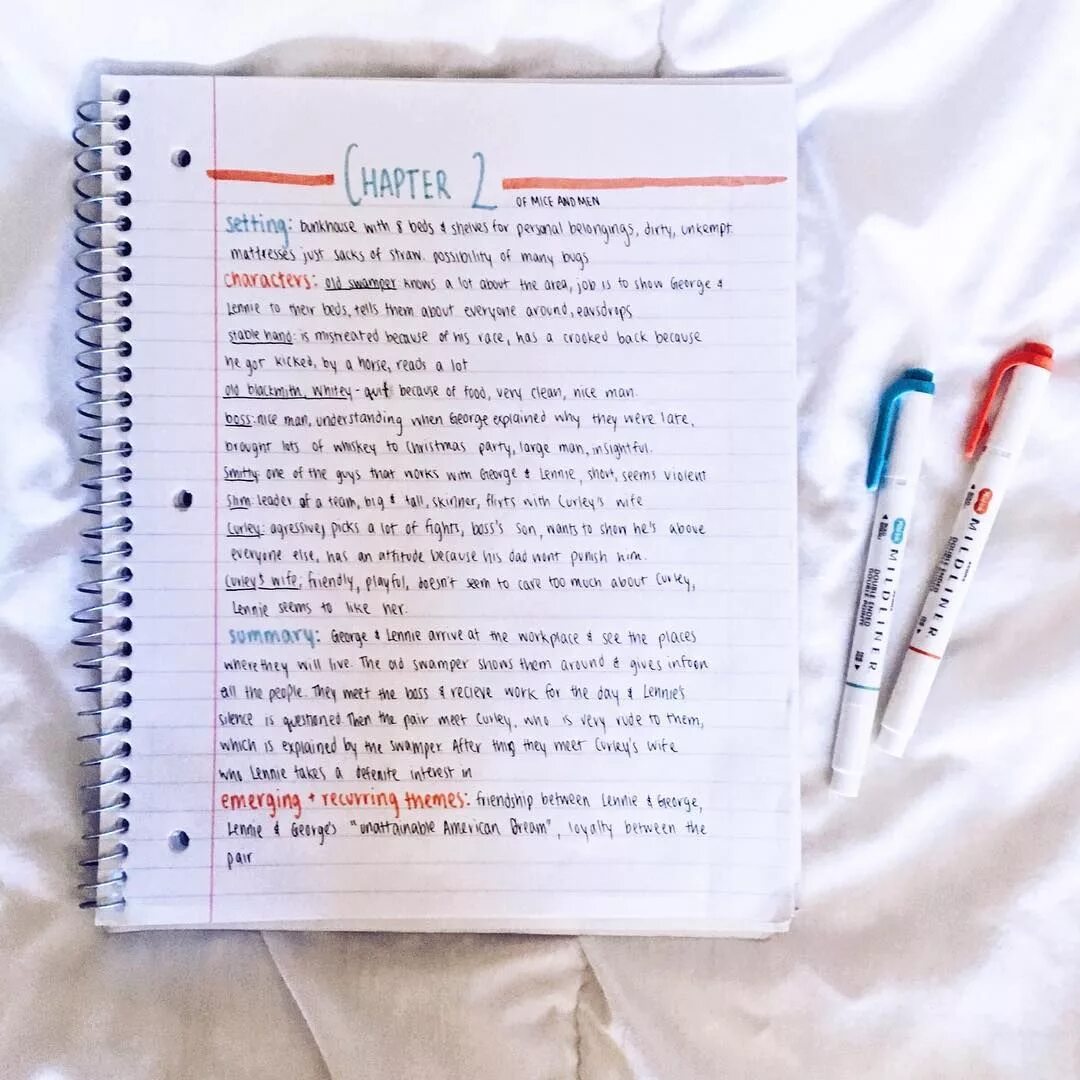 CHAPTER 2
OF MICE AND MEN
setting: bunkhouse with 8 beds & shelves for personal belongings, dirty, unkempt.
mattresses just sacks of straw. possibility of many bugs
characters: old swamper knows a lot about the area, job is to show George &
Lennie to their beds, tells them about everyone around, eavsdrops
stable hand: is mistreated because of his race, has a crooked back because
he got kicked, by a horse, reads a lot
old blackmith, whitey - quit because of food, very clean, nice man.
boss: nice man, understanding when George explained why they were late,
brought lots of whiskey to Christmas party, large man, insightful.
Smitty: one of the guys that works with George & Lennie, short, seems violent
Slim: leader of a team, big & tall, skinner, flirts with Curley's wife
Curley: agressive, picks a lot of fights, boss's son, wants to show he's above
everyone else, has an attitude because his dad wont punish him.
Curley's wife; friendly, playful, doesn't seem to care too much about Curley,
Lennie seems to like her.
summary: George & Lennie arrive at the workplace & see the places
where they will live. The old swamper shows them around & gives info on
all the people. They meet the boss & recieve work for the day & Lennie's
silence is questioned. Then the pair meet Curley, who is very rude to them,
which is explained by the swamper. After this they meet Curley's wife
who Lennie takes a defenite interest in
emerging + recurring themes: friendship between Lennie & George,
Lennie & George's "unattainable American Dream", loyalty between the
pair
MILDLINER
DOUBLE ENDED
DOUBLE POINT
MILDLINER
DOUBLE ENDED
DOUBLE POINT